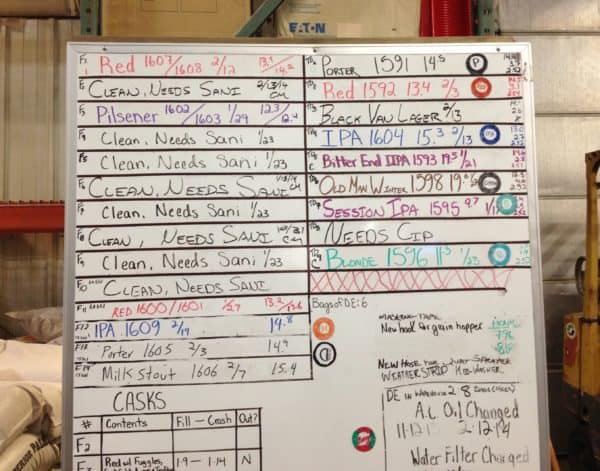 EATON
F1 Red 1607/1608 2/12 13.1/14.2
CLEAN, NEEDS SANI 2/13/14 CM
F3 Pilsener 1602/1603 1/29 12.3/12.4
F4 Clean, Needs Sani 1/23
F5 Clean, Needs Sani 1/23
F6 CLEAN, NEEDS SANI CM
F7 Clean, Needs Sani 1/23
F8 CLEAN, NEEDS SANI CM
F9 Clean, Needs Sani 1/23
F10 CLEAN, NEEDS SANI
F11 RED 1600/1601 13.2/13.6
F12 IPA 1609 2/19 14.8
F13 Porter 1605 2/3 14.9
F14 Milk Stout 1606 2/7 15.4
PORTER 1591 14.5 P
Red 1592 13.4 2/3
BLACK VAN LAGER 2/13
IPA 1604 15.3 2/13
Bitter End IIPA 1593 19.5 1/21
OLD MAN WINTER 1598
SESSION IPA 1595 9.7
NEEDS CIP
BLONDE 1596 11.5 1/23
Bags of DE: 6
New hook for grain hopper
NEW HOSE FOR
WEATHERSTRIP
DE IN 2 8
A.C. Oil Changed
11-12-13 2-12-14
Water Filter Changed
CASKS
# Contents Fill - Crash Out?
F2
F3 Red w/ Fuggles, 1-9 - 1-14 N